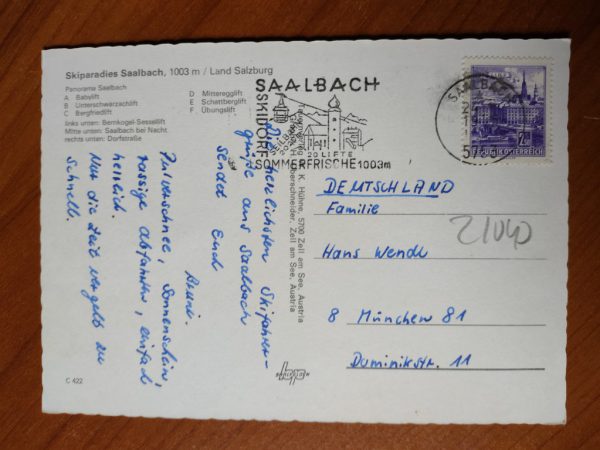 Skiparadies Saalbach, 1003 m / Land Salzburg
Panorama Saalbach
A Babylift
B Unterschwarzachlift
C Bergfriedlift
D Mitteregglift
E Schattberglift
F Übungslift
links unten: Bernkogel-Sessellift
Mitte unten: Saalbach bei Nacht
rechts unten: Dorfstraße
SAALBACH
SKIDORF
20 LIFTE
SOMMERFRISCHE 1003m
SAALBACH
REPUBLIK ÖSTERREICH
K. Hühne, 5700 Zell am See, Austria
Haberschneider, Zell am See, Austria
herzlichsten Skifahrer-
grüße aus Saalbach
sendet Euch
Benni.
Pulverschnee, Sonnenschein,
rassige Abfahrten, einfach
herrlich.
Nur die Zeit vergeht zu
schnell.
DEUTSCHLAND
Familie
Hans Wendl
8 München 81
Duminikstr. 11
C 422